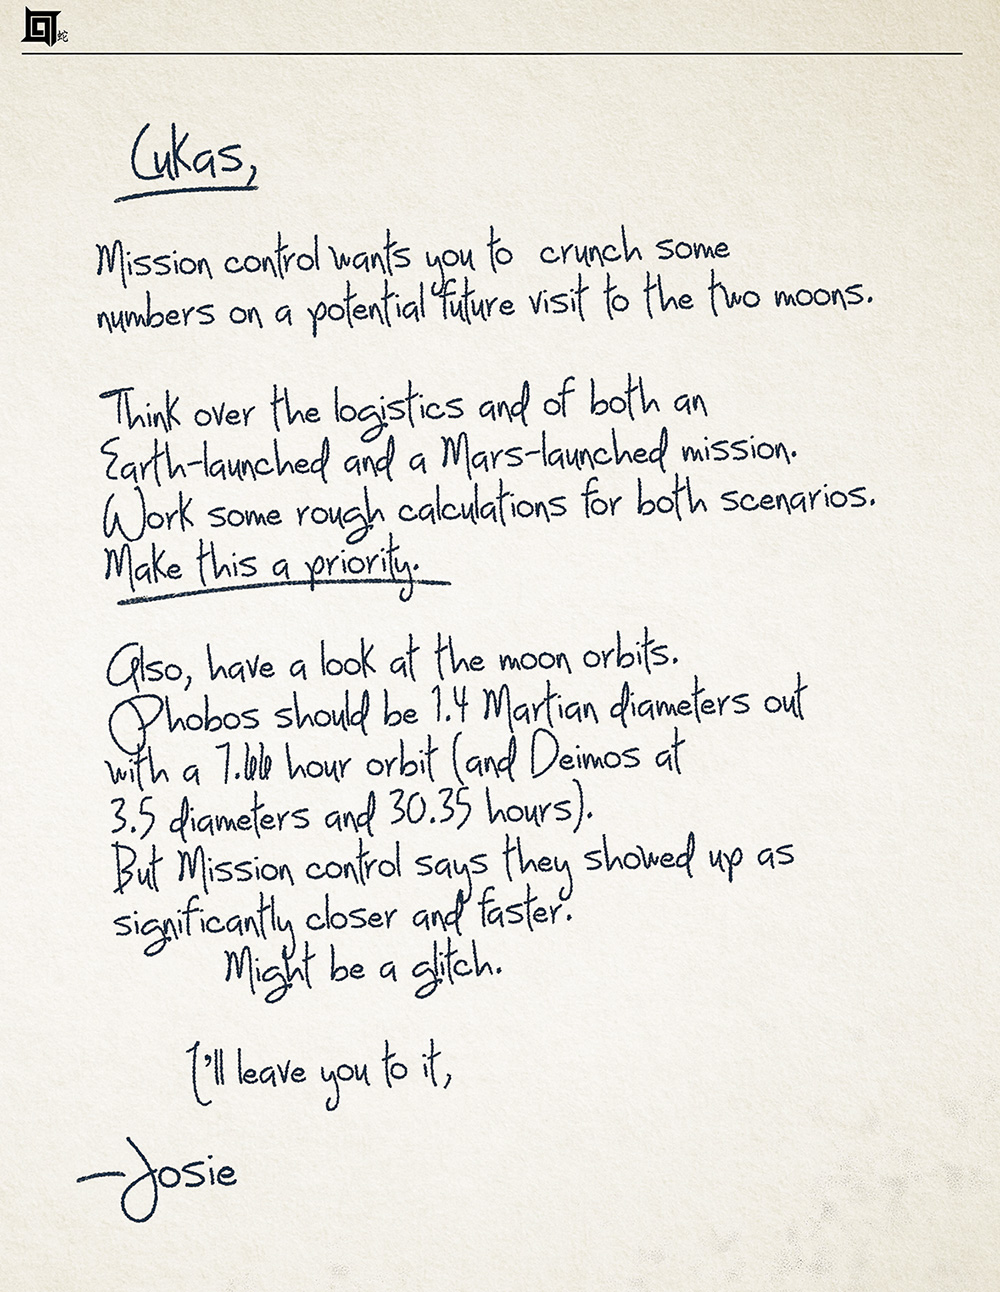 蛇
Lukas,
Mission control wants you to crunch some
numbers on a potential future visit to the two moons.
Think over the logistics and of both an
Earth-launched and a Mars-launched mission.
Work some rough calculations for both scenarios.
Make this a priority.
Also, have a look at the moon orbits.
Phobos should be 1.4 Martian diameters out
with a 7.66 hour orbit (and Deimos at
3.5 diameters and 30.35 hours).
But Mission control says they showed up as
significantly closer and faster.
Might be a glitch.
I'll leave you to it,
—Josie